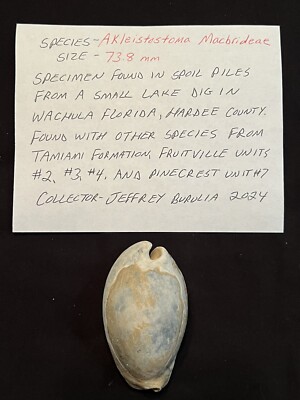 SPECIES - AKleistostoma Macbrideae
SIZE - 73.8 mm
SPECIMEN FOUND IN SPOIL PILES
FROM A SMALL LAKE DIG IN
WACHULA FLORIDA, HARDEE COUNTY.
FOUND WITH OTHER SPECIES FROM
TAMIAMI FORMATION, FRUITVILLE UNITS
#2, #3, #4, AND PINECREST UNIT #7
COLLECTOR - JEFFREY BURULIA 2024